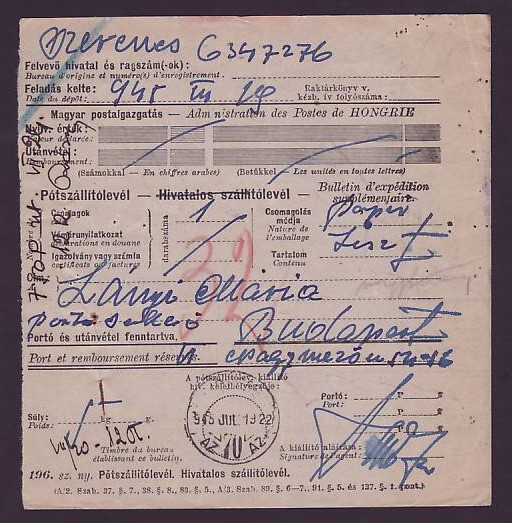 6347276
Felvevő hivatal és ragszám(-ok):
Bureau d'origine et numéro(s) d'enregistrement.
Feladás kelte: 945 III 19 Raktárkönyv v.
Date du dépôt: kézb. ív folyószáma:
Magyar postaigazgatás — Administration des Postes de HONGRIE
érték:
Utánvétel:
Remboursement:
(Számokkal — En chiffres arabes) (Betűkkel — Les unités en toutes lettres)
Pótszállítólevél — Hivatalos szállítólevél — Bulletin d'expédition supplémentaire.
Csomagok 1 Csomagolás módja Papir
Nature de l'emballage
Vámárunyilatkozat
Déclarations en douane
darabszáma
Igazolvány vagy számla Tartalom Liszt
certificats ou factures Contenu
32
Lányi Mária
Portó és utánvétel fenntartva. Budapest
Port et remboursement réservés.
A pótszállítólev. kiállító
hiv. keletbélyegzője:
Súly: kg g
Poids:
945 JUL 19 22
70
Timbre du bureau
établissant ce bulletin.
Portó: P g
Port: P g
P g
A kiállító aláírása:
Signature de l'agent:
196. sz. ny. Pótszállítólevél. Hivatalos szállítólevél.
(A/2. Szab. 37. §. 7., 38. §. 8., 83. §. 5., A/3. Szab. 89. §. 6—7., 91. §. 5 és 137. §. 1. pont.)